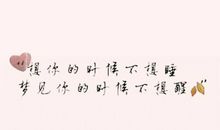 “想你的时候不想睡
梦见你的时候不想醒”